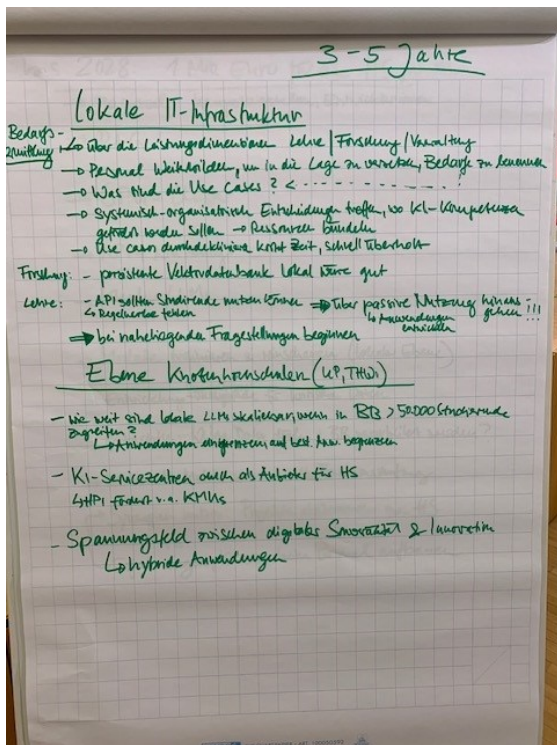 3-5 Jahre
Lokale IT-Infrastruktur
Bedarfs-
ermittlung
↳ über die Leistungsdimensionen Lehre/Forschung/Verwaltung
→ Personal weiterbilden, um in die Lage zu versetzen, Bedarfe zu benennen
→ Was sind die Use Cases? <
→ Systemisch-organisatorisch Entscheidungen treffen, wo KI-Kompetenzen
gefördert werden sollen → Ressourcen bündeln
→ Use cases durchdeklinieren kostet Zeit, schnell überholt
Forschung: - persistente Vektordatenbank lokal wäre gut
Lehre: - API sollten Studierende nutzen können ⇒ über passive Nutzung hinaus
↳ Regelwerke fehlen ↳ Anwendungen gehen!!!
entwickeln
⇒ bei naheliegenden Fragestellungen beginnen
Ebene Knotenhochschulen (UP, THWi)
- Wie weit sind lokale LLMs skalierbar, wenn in BB > 50.000 Studierende
zugreifen?
↳ Anwendungen eingrenzen, auf best. Anw. begrenzen
- KI-Servicezentren auch als Anbieter für HS
↳ HPI fördert v.a. KMUs
- Spannungsfeld zwischen digitaler Souveränität & Innovation
↳ hybride Anwendungen